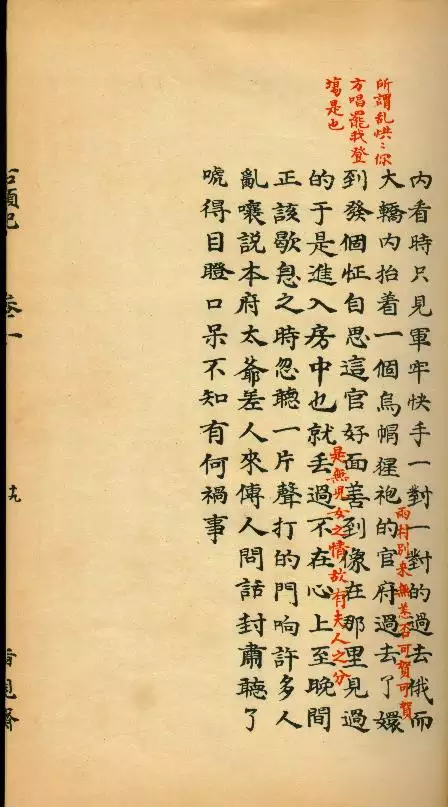 所謂乱烘〻你
方唱罷我登
塲是也
內看時只見軍牢快手一對一對的過去俄而
雨村別來無恙否可賀可賀
大轎內抬着一個烏帽猩袍的官府過去了嬛
到發個怔自思這官好面善到像在那里見過
是無兒女之情故有夫人之分
的于是進入房中也就丟過不在心上至晚間
正該歇息之時忽聽一片聲打的門响許多人
亂嚷説本府太爺差人來傳人問話封肅聽了
唬得目瞪口呆不知有何禍事